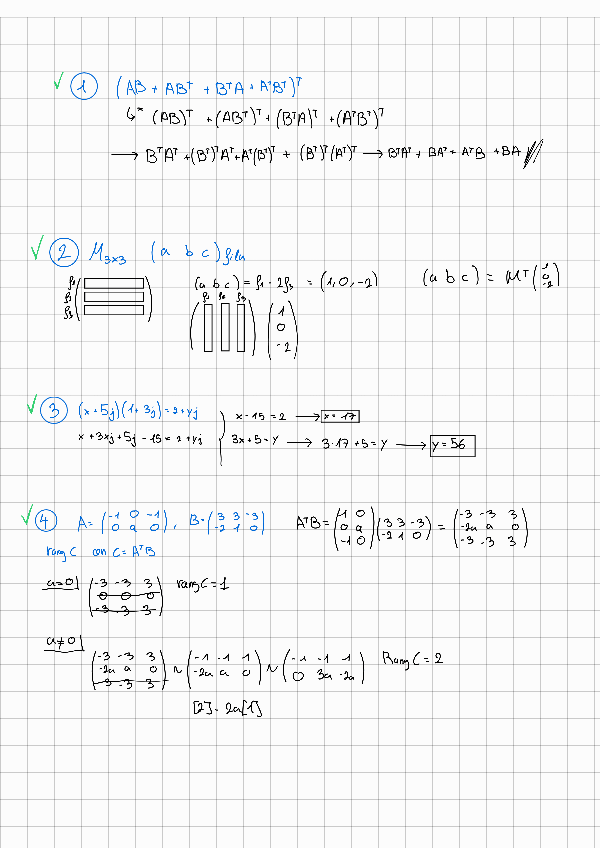 ✓ ① (AB + ABᵀ + BᵀA + AᵀBᵀ)ᵀ
↳* (AB)ᵀ + (ABᵀ)ᵀ + (BᵀA)ᵀ + (AᵀBᵀ)ᵀ
→ BᵀAᵀ + (Bᵀ)ᵀAᵀ + Aᵀ(Bᵀ)ᵀ + (Bᵀ)ᵀ(Aᵀ)ᵀ → BᵀAᵀ + BAᵀ + AᵀB + BA //
✓ ② M₃ₓ₃ (a b c) fila
f₁ f₂ f₃ (a b c) = f₁ - 2f₃ = (1, 0, -2) (a b c) = Mᵀ (1 0 -2)
f₁ f₂ f₃ (1 0 -2)
✓ ③ (x + 5j)(1 + 3j) = 2 + yj x - 15 = 2 → x = 17
x + 3xj + 5j - 15 = 2 + yj 3x + 5 = y → 3·17 + 5 = y → y = 56
✓ ④ A = (-1 0 -1 / 0 a 0), B = (3 3 -3 / -2 1 0) AᵀB = (-1 0 / 0 a / -1 0)(3 3 -3 / -2 1 0) = (-3 -3 3 / -2a a 0 / -3 -3 3)
rang C con C = AᵀB
a = 0 (-3 -3 3 / 0 0 0 / -3 -3 3) rang C = 1
a ≠ 0
(-3 -3 3 / -2a a 0 / -3 -3 3) ~ (-1 -1 1 / -2a a 0) ~ (-1 -1 1 / 0 3a -2a) Rang C = 2
[2] - 2a[1]